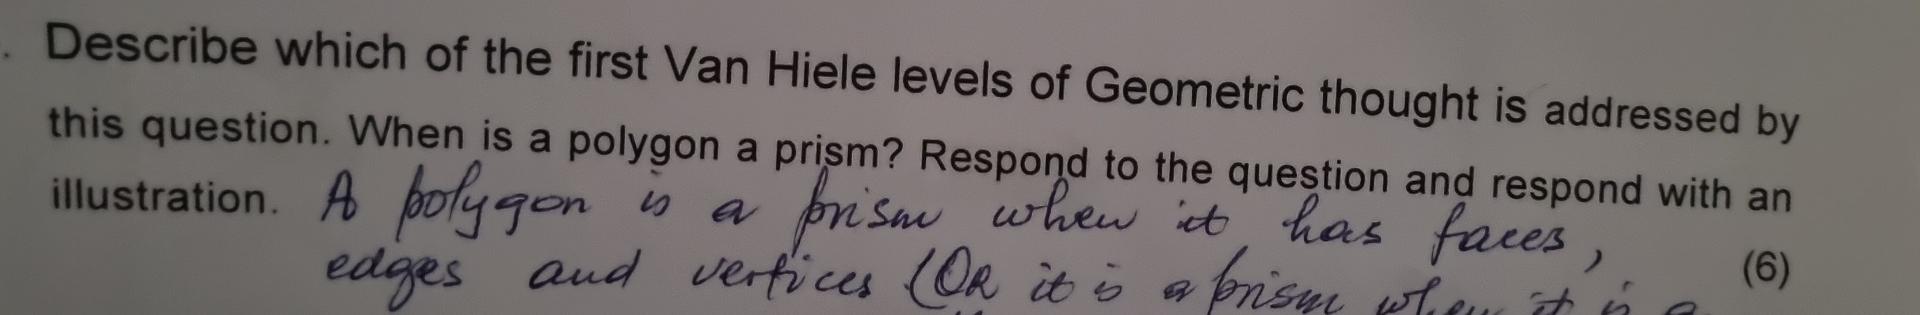 Describe which of the first Van Hiele levels of Geometric thought is addressed by
this question. When is a polygon a prism? Respond to the question and respond with an
illustration. A polygon is a prism when it has faces,
edges and vertices (OR it is a prism when it is a
(6)